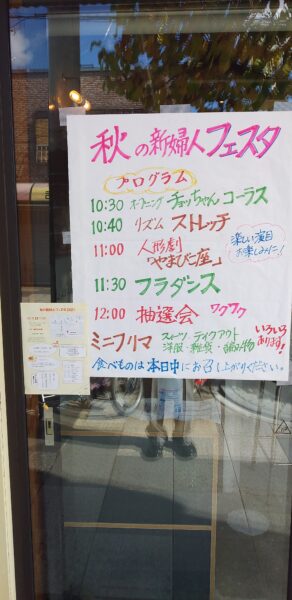 秋の新婦人フェスタ
プログラム
10:30 オープニング チェッちゃんコーラス
10:40 リズム ストレッチ
11:00 人形劇
「やまびこ座」
楽しい演目
お楽しみに!
11:30 フラダンス
12:00 抽選会 ワクワク
ミニフリマ スイーツ・テイクアウト
洋服・雑貨・編み物
いろいろ
あります!
食べものは本日中にお召し上がりください。